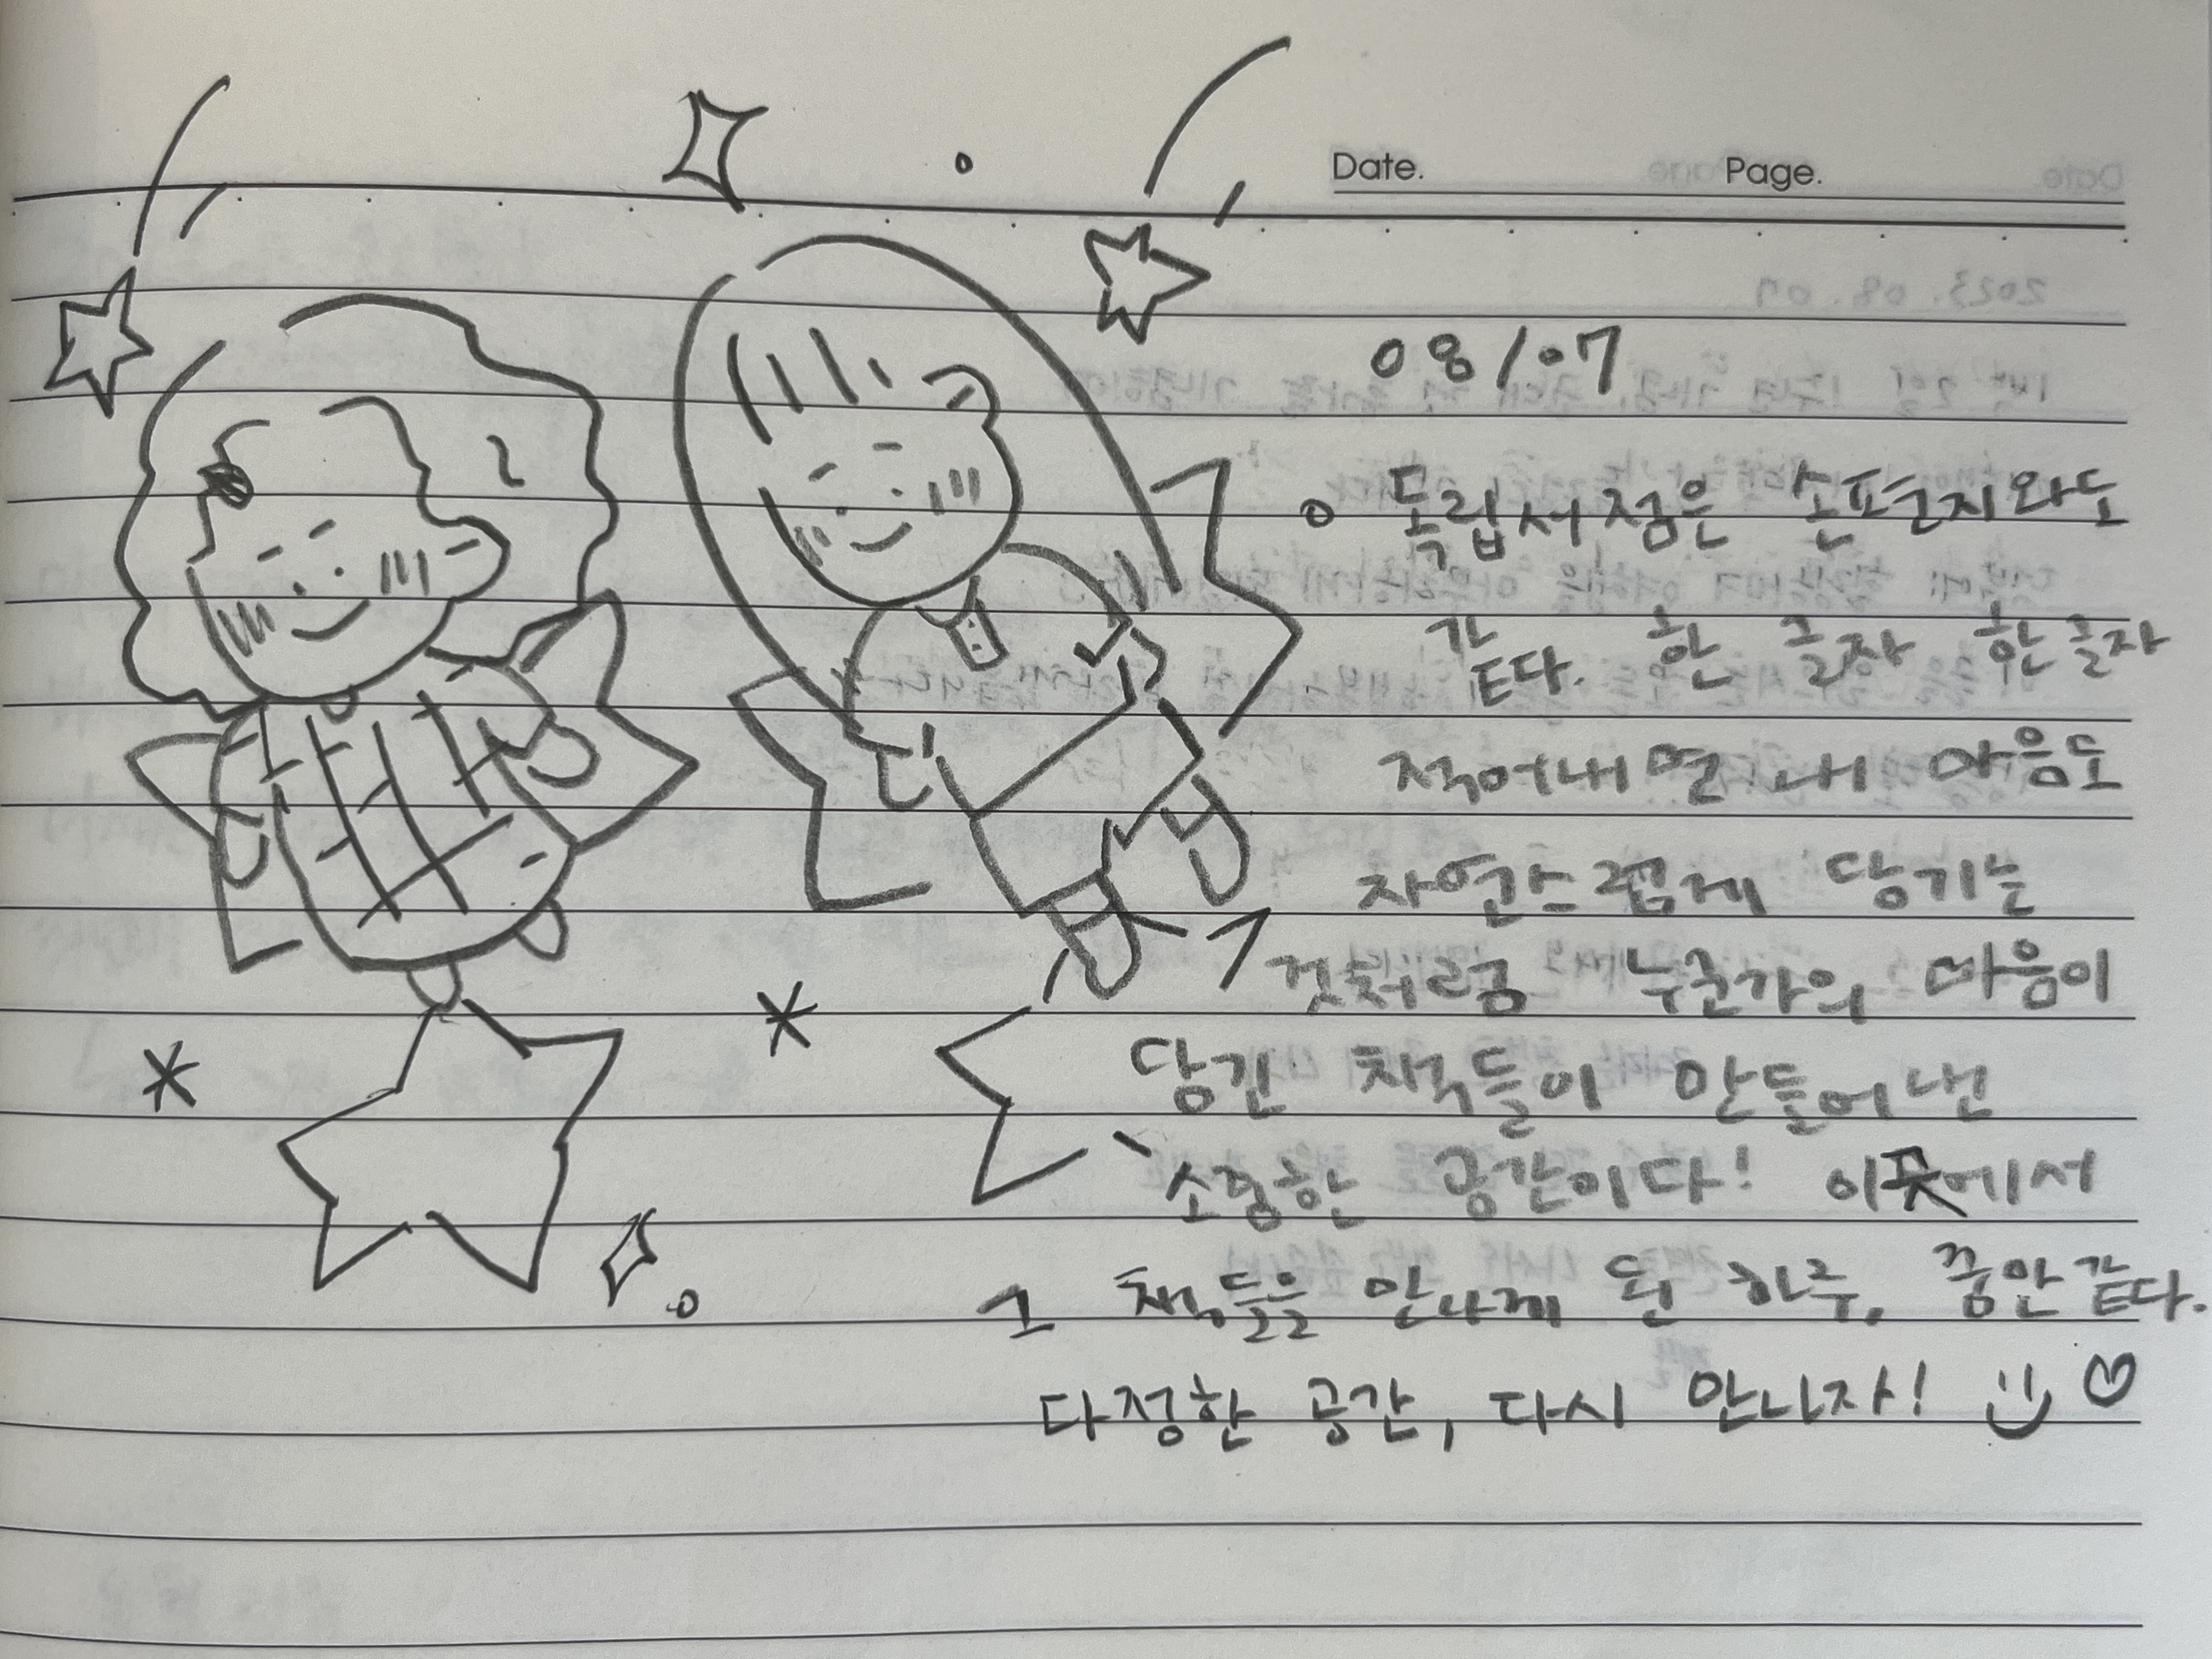 Date. Page.
08/07
독립서점은 손편지와도
같다. 한 글자 한 글자
적어내면 내 마음도
자연스럽게 담기는
것처럼 누군가의 마음이
담긴 책들이 만들어낸
소중한 공간이다! 이곳에서
그 책들을 만나게 된 하루, 꿈만 같다.
다정한 공간, 다시 만나자!